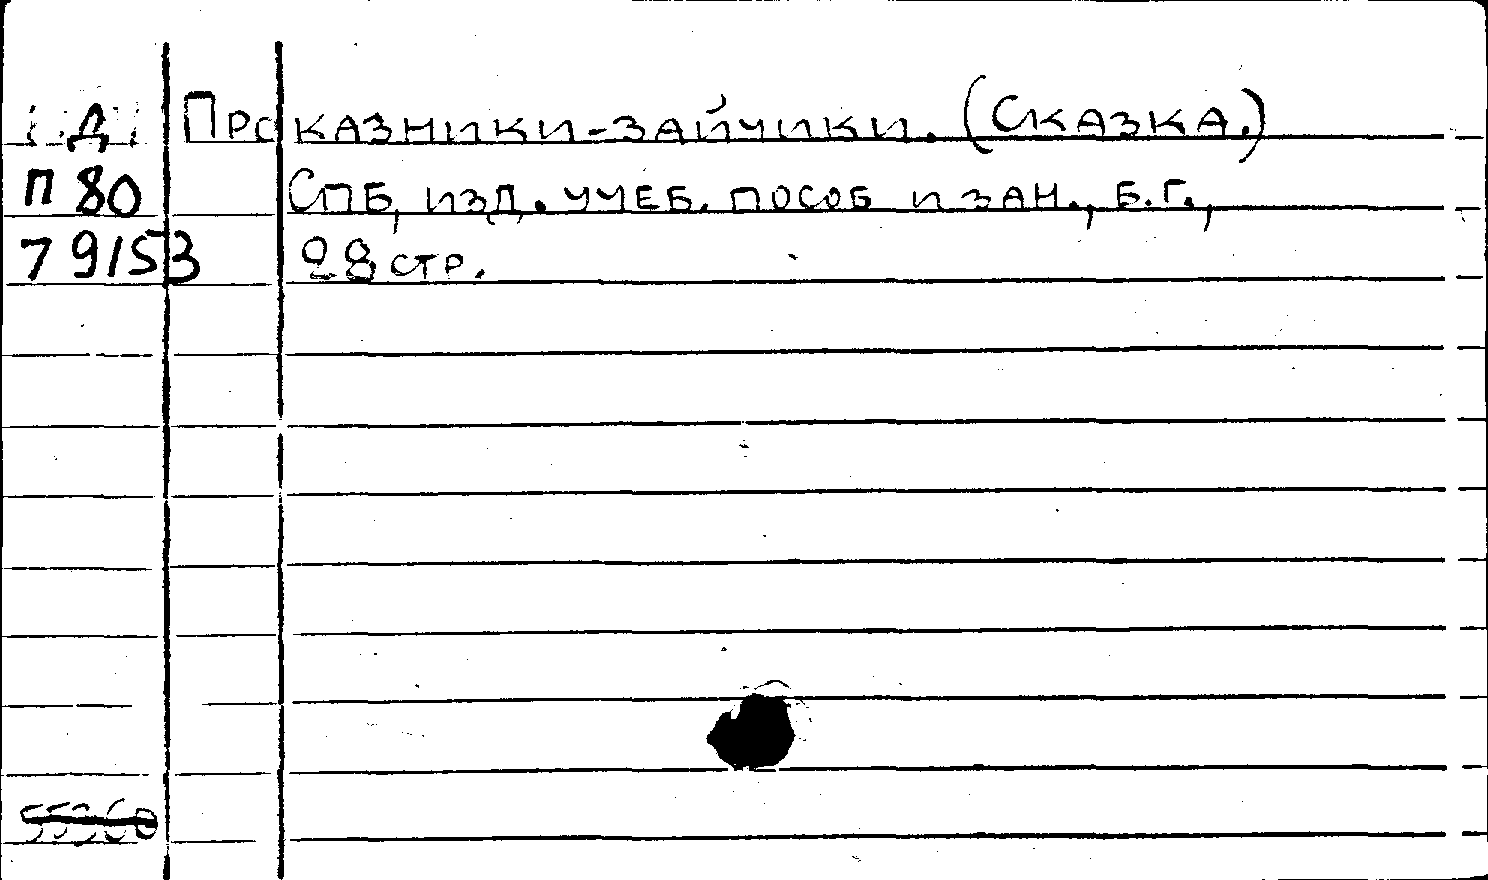 Д Проказники-зайчики. (Сказка.)
П 80 СПБ, изд. учеб. пособ и зан., Б.Г.,
79153 28 стр.